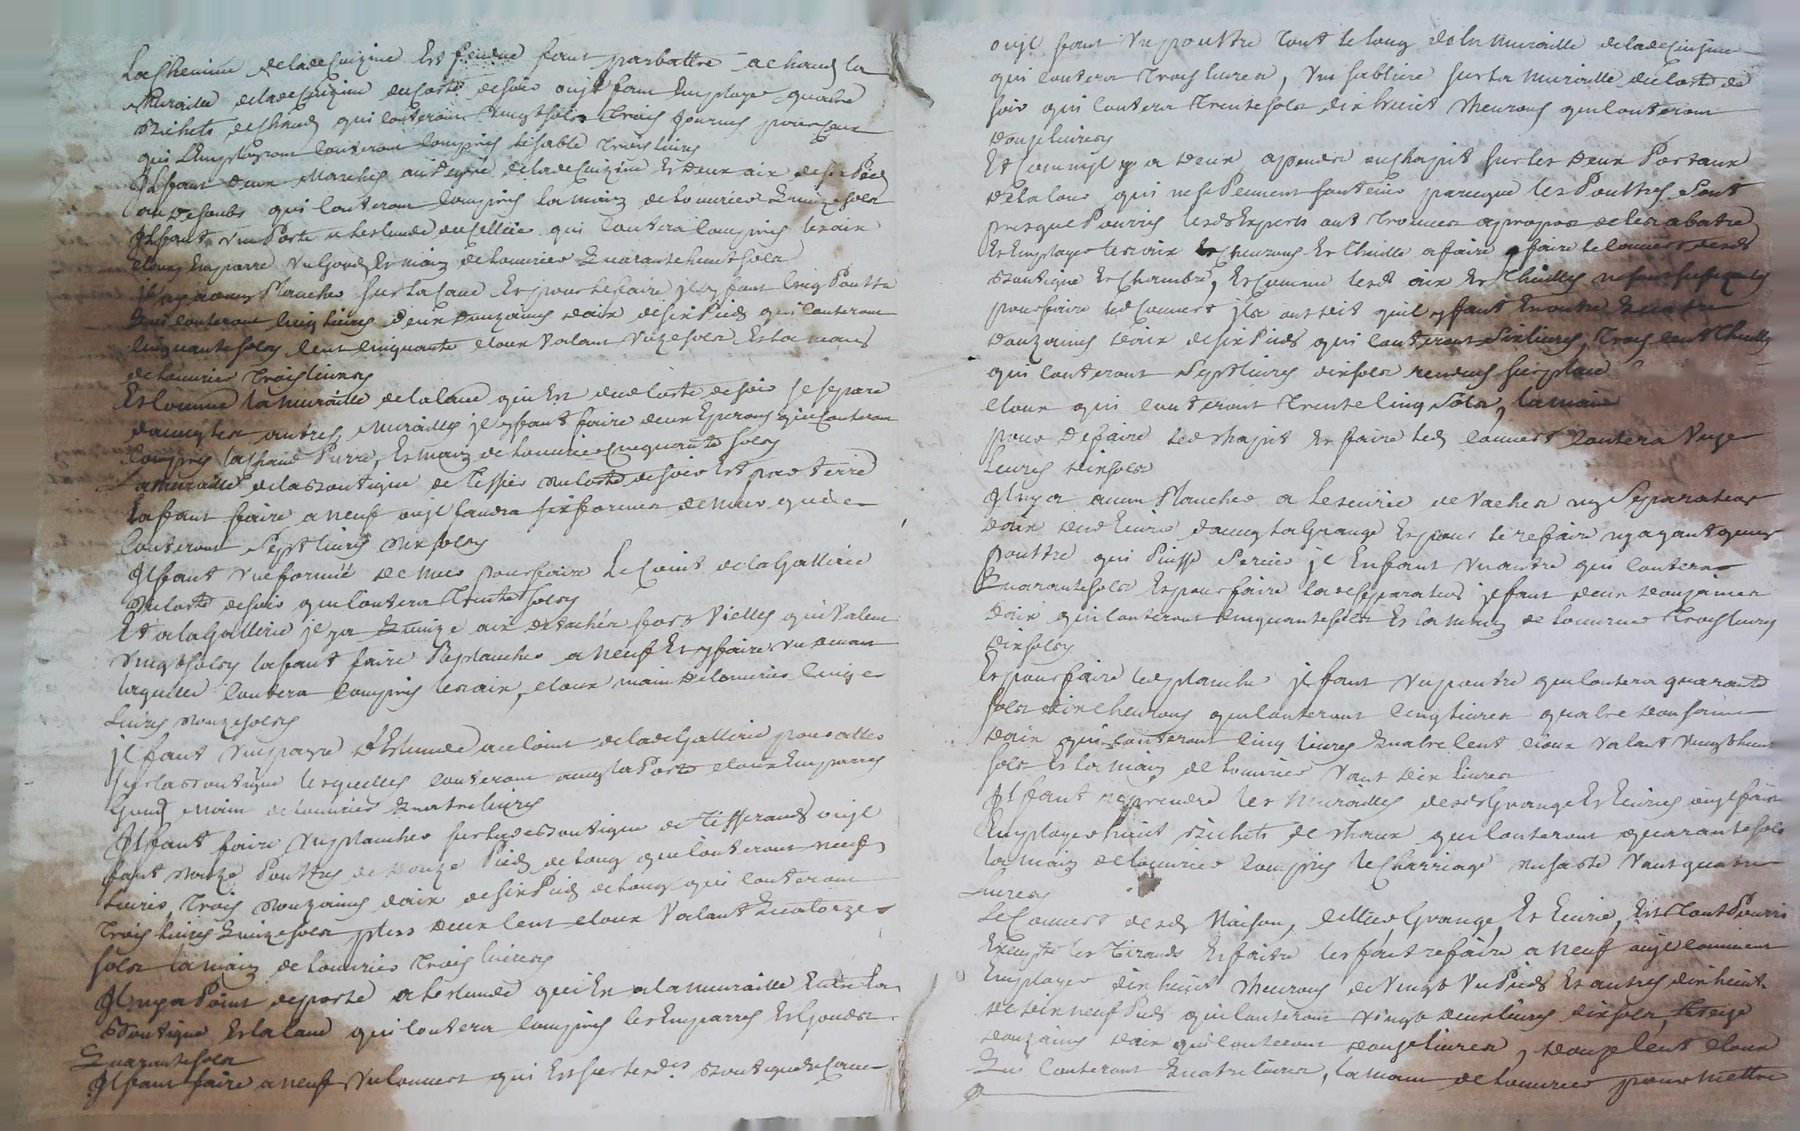 La Chemine de lade Cuizine Est fendue faut par battre a chaud la
Muraille de lade Cuizine du costé de soir ou jl faut Employe quatre
Bichets de chaud qui couteront vingt sols trois journes pour ceux
qui L'Employeront couteront compris le sable trois livres
Jl faut deux Marches au degré de lade Cuizine Et deux aix de six Pieds
au desoubs qui couteront compris la main de louvrier quinze sols
Jl faut une Porte a lestude du cellier qui coutera compris les aix
cloux Emparre un gond Et main de louvrier quarante huit sols
Jl ny a aucun Plancher sur la Cave Et pour le faire jl y faut cinq Pouttre
qui couteront cinq livres deux douzaines d'aix de six Pieds qui couteront
cinquante sols cent cinquante cloux valant unze sols Et la main
de louvrier trois livres
Et comme la muraille de la cave qui Est du costé de soir se separe
d'avec les autres Murailles jl y faut faire deux Eperons qui couteront
compris la chaud Pierre, Et main de louvrier cinquante sols
La muraille de la Boutique de tessier du costé de soir Est par terre
la faut faire a neuf ou jl faudra six formes de mur que
couteront sept livres dix sols
Jl faut une forme de mur pour faire le Coint de la Gallerie
du costé de soir qui coutera trente sols
Et a la Gallerie jl y a quinze aix détachés fort vielles qui valent
vingt sols la faut faire Replancher a neuf Et y faire un devant
laquelle coutera compris les aix, cloux main de louvrier cinq
livres douze sols
jl faut une payre d'Estude au coint de lade Gallerie pour aller
sur la Boutique lesquelles couteront avec la Porte cloux Emparres
Gond main de louvrier quatre livres
Jl faut faire un plancher sur lade Boutique de tisserands ou jl
faut douze Pouttres de douze Pieds de long qui couteront neuf
livres trois douzaines d'aix de six Pieds de long qui couteront
trois livres quinze sols plus deux cent cloux valant quatorze
sols la main de louvrier trois livres
Jl ny a Point de porte a lestude qui Est a la muraille Entre la
Boutique Et la cave qui coutera compris les Emparres Et Gonds
quarante sols
Jl faut faire a neuf un couvert qui Est sur lesdes Boutique Et cave
ou jl faut un pouttre tout le long de la muraille de lade Cuizine
qui coutera trois livres, une sabliere sur la muraille du costé de
soir qui coutera trente sols dix huict cheurons qui couteront
douze livres
Et comme jl y a deux apendre en chapit sur les deux Portaux
de la cour qui ne se Peuvent soutenir parceque les Pouttres sont
presque Pourris lesds Experts ont trouvés apropos de les abatre
Et Employer les aix cheurons Et thuille a faire le couvert desds
Boutique Et Chambre, Et comme lesds aix Et thuilles ne sont sufizants
pour faire led Couvert jls ont dit quil y faut En outre quatre
douzaines d'aix de six Pieds qui couteront six livres, trois cent thuilles
qui couteront sept livres dix sols rendus sur place
cloux qui couteront trente cinq sols, la main
pour defaire led chapit Et faire led couvert coutera unze
livres dix sols
Jl ny a aucun Plancher a lecurie de vaches ny separation
d'aix dud Ecurie d'avec la Grange Et pour le refaire ny ayant quun
pouttre qui Puisse servir jl En faut un autre qui coutera
quarante sols Et pour faire lade separation jl faut deux douzaines
d'aix qui couteront cinquante sols Et la main de louvrier trois livres
dix sols
Et pour faire led plancher jl faut un pouttre qui coutera quarante
sols dix cheurons qui couteront cinq livres quatre douzaines
d'aix qui couteront cinq livres quatre cent cloux valant vingt huit
sols Et la main de louvrier vaut dix livres
Jl faut reprendre les murailles desds Grange Et Ecuries ou jl faut
Employer huict Bichets de chaux qui couteront quarante sols
la main de louvrier compris le Charriage du sable vaut quatre
livres
Le Couvert desds Maison, Cellier, Grange, Et Ecurie, Est tout Pourri
Excepté les tirands Et faitre les faut refaire a neuf ou jl convient
Employer dix huict cheurons de vingt un Pieds Et autres dix huit
de dix neuf Pieds qui couteront vingt deux livres dix sols, seize
douzaines d'aix qui couteront douze livres, douze cent cloux
qui couteront quatre livres, la main de louvrier pour mettre